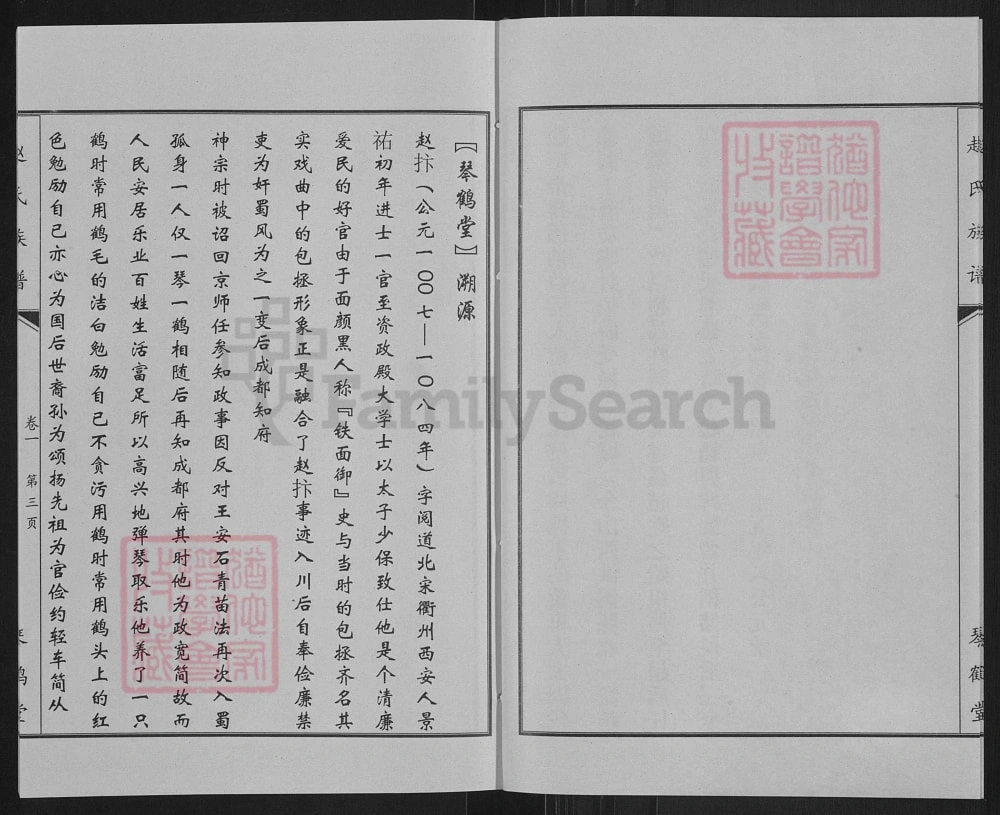 赵氏族谱
琴鹤堂
【琴鹤堂】溯源
赵抃（公元一〇〇七—一〇八四年）字阅道北宋衢州西安人景
祐初年进士一官至资政殿大学士以太子少保致仕他是个清廉
爱民的好官由于面颜黑人称『铁面御』史与当时的包拯齐名其
实戏曲中的包拯形象正是融合了赵抃事迹入川后自奉俭廉禁
吏为奸蜀风为之一变后成都知府
神宗时被诏回京师任参知政事因反对王安石青苗法再次入蜀
孤身一人仅一琴一鹤相随后再知成都府其时他为政宽简故而
人民安居乐业百姓生活富足所以高兴地弹琴取乐他养了一只
鹤时常用鹤毛的洁白勉励自己不贪污用鹤时常用鹤头上的红
色勉励自己亦心为国后世裔孙为颂扬先祖为官俭约轻车简从
赵氏族谱
卷一 第三页
琴鹤堂
FamilySearch
谱学会
收藏